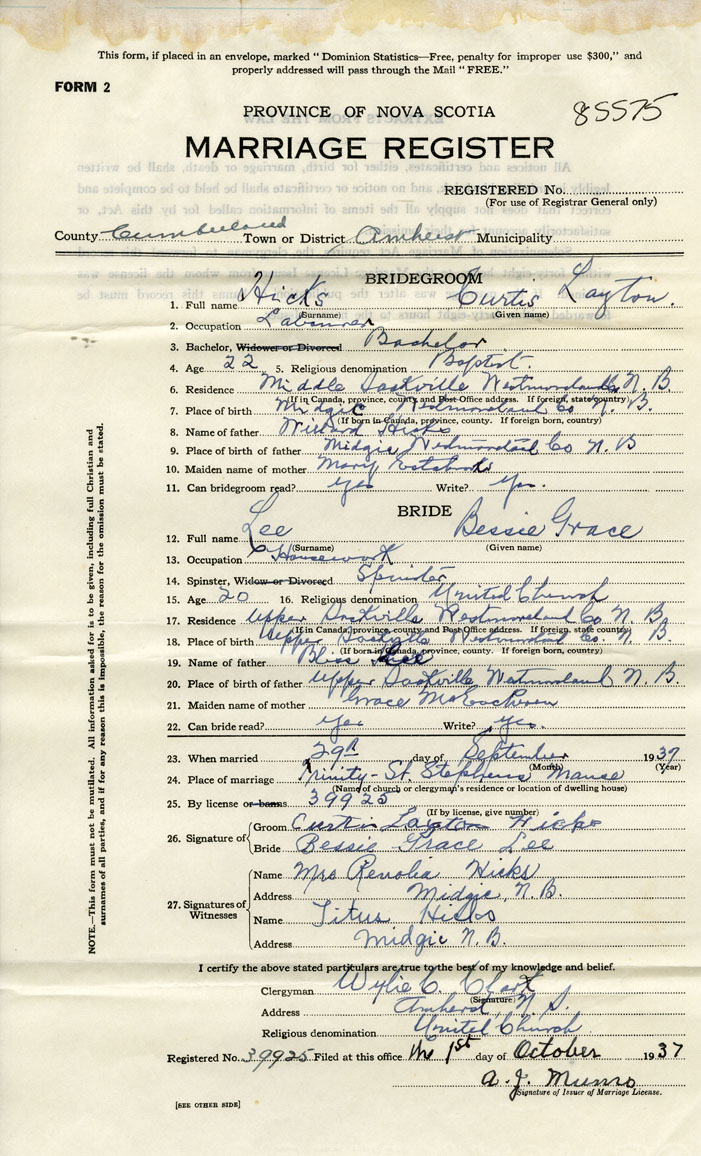 This form, if placed in an envelope, marked " Dominion Statistics—Free, penalty for improper use $300," and
properly addressed will pass through the Mail " FREE."
FORM 2
PROVINCE OF NOVA SCOTIA
85575
MARRIAGE REGISTER
REGISTERED No.
(For use of Registrar General only)
County Cumberland Town or District Amherst Municipality
BRIDEGROOM
1. Full name Hicks Curtis Layton.
(Surname) (Given name)
2. Occupation Labourer
3. Bachelor, Widower or Divorced Bachelor
4. Age 22 5. Religious denomination Baptist.
6. Residence Middle Sackville Westmoreland Co N. B
(If in Canada, province, county and Post Office address. If foreign, state country)
7. Place of birth Midgic Westmoreland Co N. B.
(If born in Canada, province, county. If foreign born, country)
8. Name of father Willard Hicks
9. Place of birth of father Midgic Westmoreland Co N. B
10. Maiden name of mother Mary Estabrooks
11. Can bridegroom read? Yes Write? Yes.
BRIDE
12. Full name Lee Bessie Grace
(Surname) (Given name)
13. Occupation Housework
14. Spinster, Widow or Divorced Spinster
15. Age 20 16. Religious denomination United Church
17. Residence Upper Sackville Westmoreland Co N. B
(If in Canada, province, county and Post Office address. If foreign, state country)
18. Place of birth Upper Sackville Westmoreland Co. N. B
(If born in Canada, province, county. If foreign born, country)
19. Name of father Bliss Lee
20. Place of father Upper Sackville Westmoreland N. B.
21. Maiden name of mother Grace McEachern
22. Can bride read? Yes Write? Yes.
23. When married 29th day of September 1937
(Month) (Year)
24. Place of marriage Trinity-St. Stephens Manse
(Name of church or clergyman's residence or location of dwelling house)
25. By license or banns 39925
(If by license, give number)
26. Signature of
Groom Curtis Layton Hicks
Bride Bessie Grace Lee
27. Signatures of Witnesses
Name Mrs Renolia Hicks
Address Midgic, N.B.
Name Titus Hicks
Address Midgic N.B.
I certify the above stated particulars are true to the best of my knowledge and belief.
Clergyman Wylie C. Clark
(Signature)
Address Amherst, N. S.
Religious denomination United Church
Registered No. 39925 Filed at this office the 1st day of October 1937
A. J. Munro
Signature of Issuer of Marriage License.
[SEE OTHER SIDE]
NOTE.—This form must not be mutilated. All information asked for is to be given, including full Christian and
surnames of all parties, and if for any reason this is impossible, the reason for the omission must be stated.